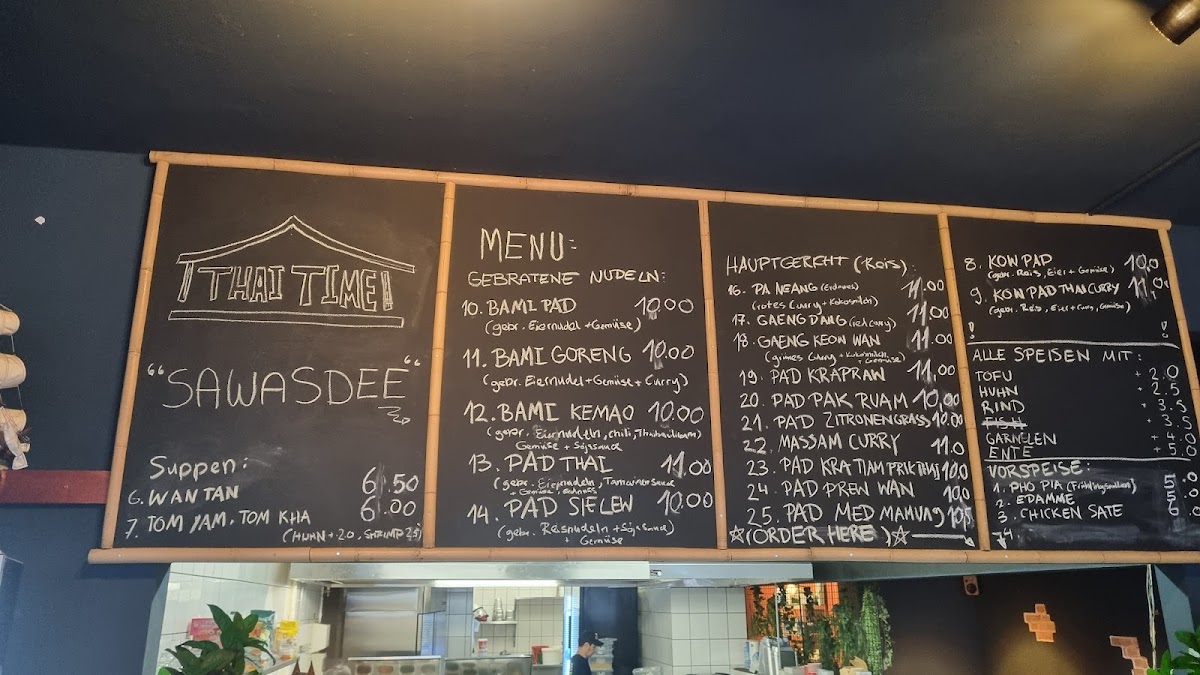 THAI TIME
"SAWASDEE"
Suppen:
6. WAN TAN 6.50
7. TOM YAM, TOM KHA 6.00
(HUHN + 2.0, SHRIMP 2.5)
MENU:
GEBRATENE NUDELN:
10. BAMI PAD 10.00
(gebr. Eiernudel + Gemüse)
11. BAMI GORENG 10.00
(gebr. Eiernudel + Gemüse + Curry)
12. BAMI KEMAO 10.00
(gebr. Eiernudeln, chili, Thaibasilikum)
Gemüse + Sojasauce
13. PAD THAI 11.00
(gebr. Eiernudeln, Tamarinde Sauce
+ Gemüse, Erdnuss
14. PAD SIELEW 10.00
(gebr. Reisnudeln + Soja Sauce
+ Gemüse
HAUPTGERICHT (Reis):
16. PA NEANG (Erdnuss) 11.00
(rotes Curry + Kokosmilch)
17. GAENG DANG (red curry) 11.00
18. GAENG KEOW WAN 11.00
(grünes Curry + Kokosmilch
+ Gemüse)
19. PAD KRAPRAW 11.00
20. PAD PAK RUAM 10.00
21. PAD ZITRONENGRASS 10.00
22. MASSAM CURRY 11.0
23. PAD KRA TIAM PRIK THAI 10.0
24 PAD PREW WAN 10.0
25. PAD MED MAMUNG 10.5
(ORDER HERE)
8. KOW PAD 10.0
(gebr. Reis, Eier + Gemüse)
9. KOW PAD THAI CURRY 11.0
(gebr. Reis, Eier + Curry, Gemüse)
! !
ALLE SPEISEN MIT:
TOFU + 2.0
HUHN + 2.5
RIND + 3.5
FISH + 3.5
GARNELEN + 4.0
ENTE + 5.0
VORSPEISE:
1. PHO PIA (Frühlingsrollen) 5.0
2. EDAMME 5.0
3. CHICKEN SATE 6.0